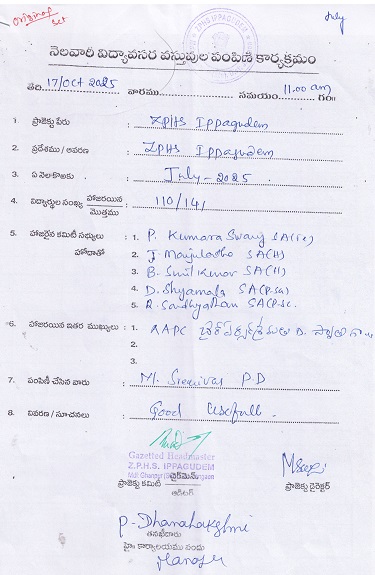 Original
Set
July
నెలవారీ విద్యావసర వస్తువుల పంపిణీ కార్యక్రమం
తేది 17/Oct 2025 వారము సమయం 11.00 am గం॥
1. ప్రాజెక్టు పేరు : ZPHS Ippagudem
2. ప్రదేశము / ఆవరణ : ZPHS Ippagudem
3. ఏ నెలకొఱకు : July - 2025
4. విద్యార్థుల సంఖ్య హాజరయిన / మొత్తము : 110/141
5. హాజరైన కమిటీ సభ్యులు : 1. P. Kumara Swamy SA(Te)
హోదాతో 2. J. Manjulatha SA(H)
3. B. Sunil Kumar SA(H)
4. D. Shyamala SA(P.Sci)
5. R. Sandhya SA(P.Sc.
6. హాజరయిన ఇతర ముఖ్యులు : 1. AAPC
2.
3.
7. పంపిణీ చేసిన వారు : M. Srenivas P.D
8. వివరణ / సూచనలు : Good Usefull.
Gazetted Headmaster
Z.P.H.S. IPPAGUDEM
చైర్‌మెన్
ప్రాజెక్టు కమిటీ
ఆడిటర్
ప్రాజెక్టు డైరెక్టర్
P. Dhanalakshmi
తనిఖీదారు
హై కార్యాలయము పంపు
Manager